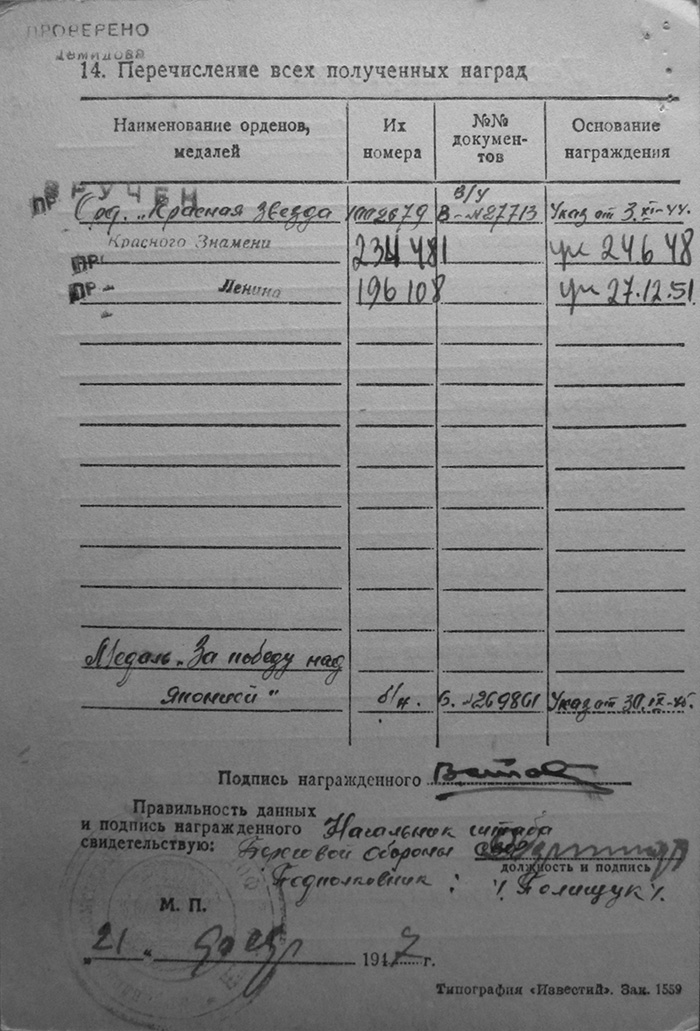 ПРОВЕРЕНО
14. Перечисление всех полученных наград
Наименование орденов, медалей
Их номера
№№ документов
Основание награждения
ВРУЧЕН
Орд. „Красная Звезда 1002679 В/У В-№27713 Указ от 3.XI-44.
Красного Знамени 234 481 ук 24 6 48
ПР- Ленина 196 108 ук 27.12.51
Медаль „За победу над
Японией" б/н. Б.№269861 Указ от 30.IX-45.
Подпись награжденного
Правильность данных
и подпись награжденного Начальник штаба
свидетельствую: Береговой Обороны
должность и подпись
Подполковник : /Полищук/.
М. П.
„21" 1947 г.
Типография «Известий». Зак. 1559